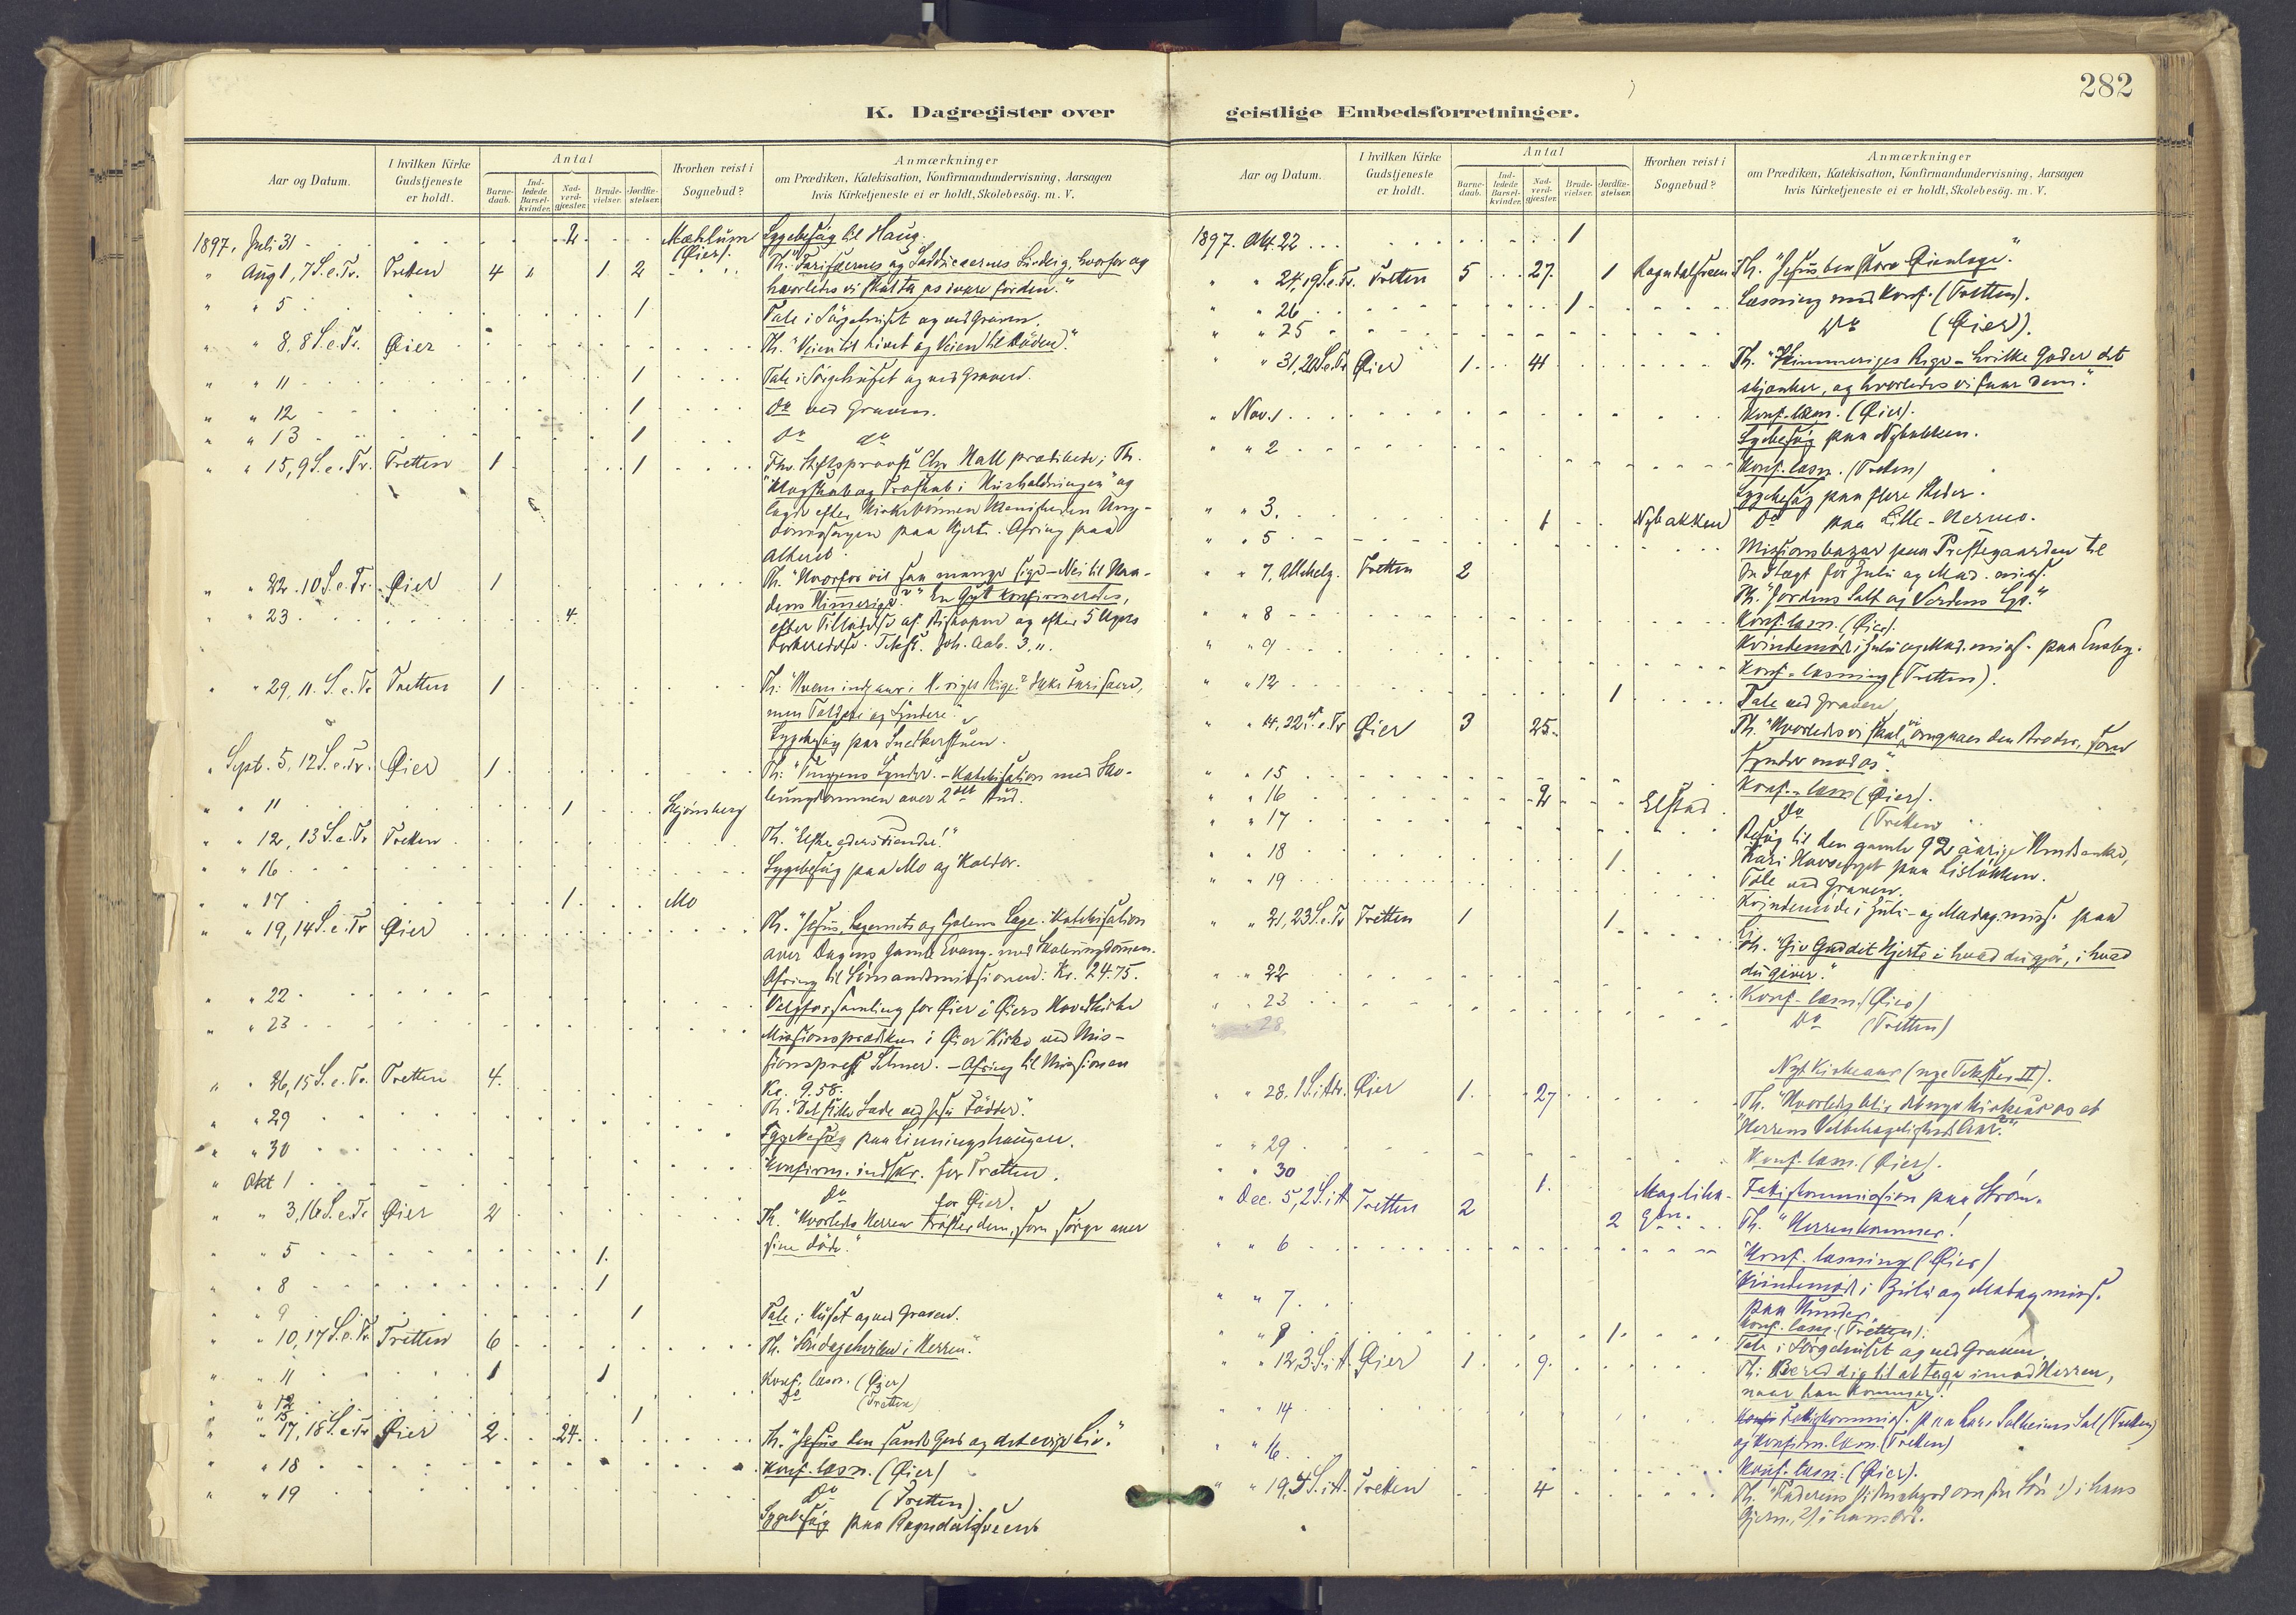 282
K. Dagregister over geistlige Embedsforretninger.
Aar og Datum. I hvilken Kirke Gudstjeneste er holdt. Antal Barnedaab. Indledede Barselkvinder. Nadverdgjæster. Brudevielser. Jordfæstelser. Hvorhen reist i Sognebud? Anmærkninger om Prædiken, Katekisation, Konfirmandundervisning, Aarsagen hvis Kirketjeneste ei er holdt, Skolebesøg. m. V.
1897, Juli 31 2 Mæhlum (Øier). Sygebesøg til Haug.
" Aug 1, 7 S. e. Tr. Tretten 4 " 1 2 Th. "Farisæernes og Sadducæernes Surdeig, hvorfor og
hvorledes vi skal ta os ivare for den."
" " 5 1 Tale i Sørgehuset og ved Graven.
" " 8, 8 S. e. Tr. Øier Th. "Veien til Livet og Veien til Døden".
" " 11 1 Tale i Sørgehuset og ved Graven.
" " 12 1 Do ved Graven.
" " 13 1 Do do
" " 15, 9 S. e. Tr. Tretten 1 1 Fhv. Stiftsprovst Chr. Hall prædikede; Th.
"Klogskab og Troskab i Husholdningen" og
lagde efter Kirkebønnen Menigheden Ung-
domssagen paa Hjerte. Ofring paa
Alteret.
" " 22. 10 S. e. Tr. Øier 1 Th. "Hvorfor vil saa mange sige - Nei til Naa-
dens Himmerige?" En Gut konfirmeredes,
" " 23 4. efter Tilladelse af Biskopen og efter 5 Ugers
Forberedelse. Tekst. Joh. Aab. 3, 11.
" " 29, 11. S. e. Tr Tretten 1 Th: "Hvem indgaar i H. riges Rige? Ikke Farisæere,
men Toldere og Syndere."
Sygebesøg paa Snedkerstuen.
" Sept. 5, 12 S. e. Tr. Øier 1 Th: "Tungens Synder". - Katekisation med Sko-
leungdommen over 2det Bud.
" " 11 1 Skjønsberg
" " 12, 13 S. e. Tr Tretten Th. "Elsker eders Fiender!"
" " 16 Sygebesøg paa Mo og Kalder.
" " 17 1. Mo
" " 19, 14 S. e. Tr Øier Th. "Jesus, Legemets og Sjælens Læge. Katekisation
over Dagens Gamle Evang. med Skoleungdommen.
Ofring til Sømandsmissionen: Kr. 24.75.
" " 22 Valgforsamling for Øier i Øiers Hovedkirke
" " 23 Missionsprædiken i Øier Kirke ved Mis-
sionsprest . - Ofring til Missionen
Kr. 9.58.
" " 26, 15 S. e. Tr. Tretten 4. Th. "Det stille Sæde ved Jesu Fødder".
" " 29 Sygebesøg paa Linningshaugen.
" " 30 Konfirm. indskr. for Tretten.
" Okt 1 Do for Øier.
" " 3, 16 S. e. Tr Øier 2 Th. "Hvorledes Herren trøster dem, som sørger over
sine døde."
" " 5 1.
" " 8 1
" " 9 1 Tale i Huset og ved Graven.
" " 10, 17 S. e. Tr. Tretten 6 Th. "Søndagshvilen i Herren".
" " 11 1 1 Konf. læsn. (Øier)
" " 12 Do (Tretten)
" " 15 1
" " 17, 18 S. e. Tr Øier 2. 24. Th. "Jesus den sande Gud og det evige Liv."
" " 18 Konf. læsn. (Øier)
" " 19 Do (Tretten).
Sygebesøg paa Rogndalsveen
Aar og Datum. I hvilken Kirke Gudstjeneste er holdt. Antal Barnedaab. Indledede Barselkvinder. Nadverdgjæster. Brudevielser. Jordfæstelser. Hvorhen reist i Sognebud? Anmærkninger om Prædiken, Katekisation, Konfirmandundervisning, Aarsagen hvis Kirketjeneste ei er holdt, Skolebesøg. m. V.
1897. Okt. 22 1
" " 24, 19 S. e. Tr. Tretten 5 27. 1 Rogndalsveen Th. "Jesus den store Øienlæge".
" " 26 1 Læsning med Konf. (Tretten).
" " 25 Do (Øier).
" " 31, 20 S. e. Tr Øier 1. 41 Th. "Himmeriges Rige - hvilke Goder det
skjænker, og hvorledes vi faar dem."
" Nov. 1 Konf. læsn. (Øier).
Sygebesøg paa Nybakken.
" " 2 Konf. læsn. (Tretten)
Sygebesøg paa flere Steder.
" " 3. 1 Nybakken Do paa Lille-Kermo.
" " 5 Missionsbazar paa Prestegaarden til
Indtægt for Zulu og Mad. miss.
" " 7, Allehelg. Tretten 2 Th. "Jordens Salt og Verdens Lys."
" " 8 Konf. læsn. (Øier).
" " 9 Kvindemøde i Zulu og Mad. miss. paa Eneby.
Konf. læsning (Tretten).
" " 12 1 Tale ved Graven
" " 14, 22 S. e. Tr Øier 3 25. Th. "Hvorledes vi skal omgaaes den Broder, som
synder mod os".
" " 15 Konf. læsn. (Øier).
" " 16 2 Elstad Do (Tretten
" " 17 Besøg til den gamle 92 aarige
Kari paa Lisløkken.
" " 18 1. Tale ved Graven.
" " 19 Kvindemøde i Zulu- og Madag. miss. paa
" " 21, 23 S. e. Tr Tretten 1 1. Th. "Giv Gud dit Hjerte i hvad du gjør, i hvad
du giver."
" " 22 Konf. læsn. (Øier)
" " 23 Do (Tretten)
" " 28
Nyt Kirkeaar (nye Tekster II).
" " 28. 1 S. i Adv. Øier 1. 27 Th. "Hvorledes blir det nye Kirkeaar os et
"Herrens Velbehageligheds Aar?"
" " 29 Konf. læsn. (Øier).
" " 30 1. Fattigkommission paa Strøm.
" Dec. 5, 2 S. i A Tretten 2 2 Th. "Herren kommer!
" " 6 Konf. læsning (Øier)
Kvindemøde i Zulu og Madag miss.
" " 7 Konf. læsn. (Tretten).
" " 9 1. Tale i Sørgehuset og ved Graven.
" " 12, 3 S. i A. Øier 1. 9. Th: Bered dig til at tage imod Herren,
naar han kommer!
" " 14 Fattigkommiss. paa Lars Solheims Sal (Tretten)
og Konfirm. læsn. (Tretten)
" " 16 Konf. læsn. (Øier).
" " 19, 4 S. i A. Tretten 4 Th. "Faderens Vidnesbyrd om sin Søn 1) i hans
Gjern., 2) i hans Ord.